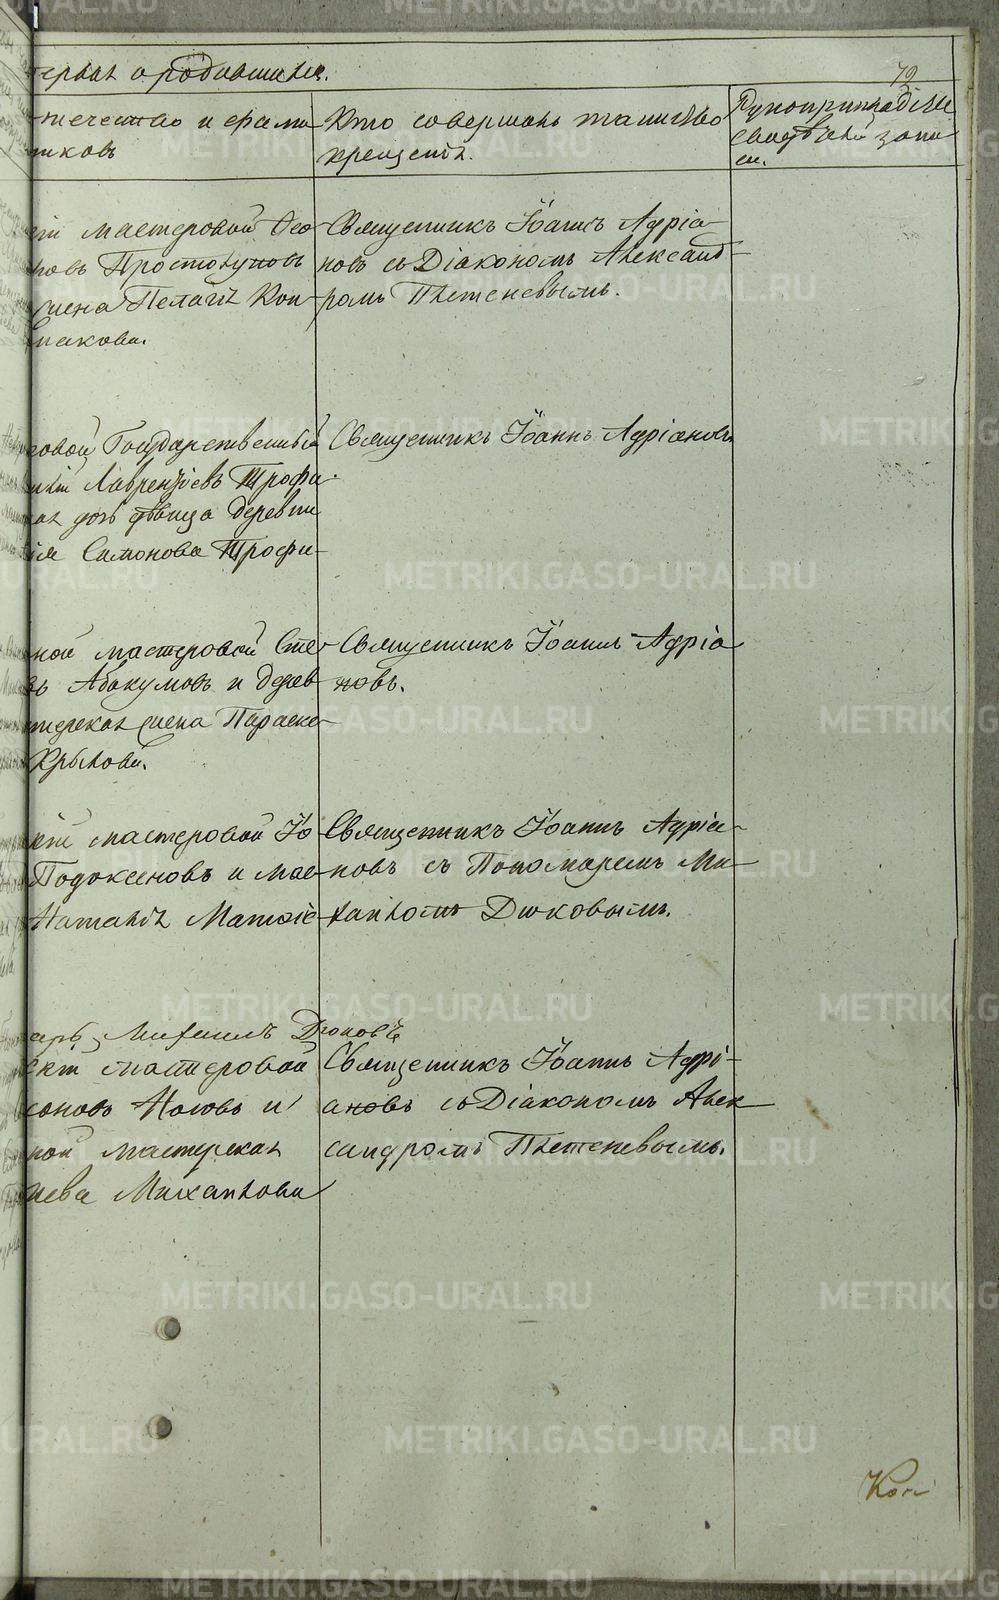 первая о родившихся.
79
отечество и фами-
никовъ
Кто совершалъ таинство
крещенія.
Рукоприкладство
свидѣтелей записи
си.
кій мастеровой Ѳео-
новъ Простолуповъ
жена Пелагія Кон-
пакова.
Священникъ Іоаннъ Адріа-
новъ съ Діакономъ Александ-
ромъ Плетеневымъ.
говой Государственный
ній Лаврентіевъ Трофи-
ая дочь дѣвица деревни
Симонова Трофи-
Священникъ Іоаннъ Адріановъ
ной мастеровой Сте-
въ Абакумовъ и дерев
мастерская жена Параске-
Крылова.
Священникъ Іоаннъ Адріа
новъ.
кій мастеровой Іо
Подоксеновъ и мас-
Наталія Матѳіе-
Священникъ Іоаннъ Адріа-
новъ съ Пономаремъ Ми-
хаиломъ Дюковымъ.
арь Михаилъ Дюковъ
скій мастеровой
соновъ Носовъ и
ной мастерская
иева Михайлова
Священникъ Іоаннъ Адрі-
ановъ съ Діакономъ Алек
сандромъ Плетеневымъ.
METRIKI.GASO-URAL.RU